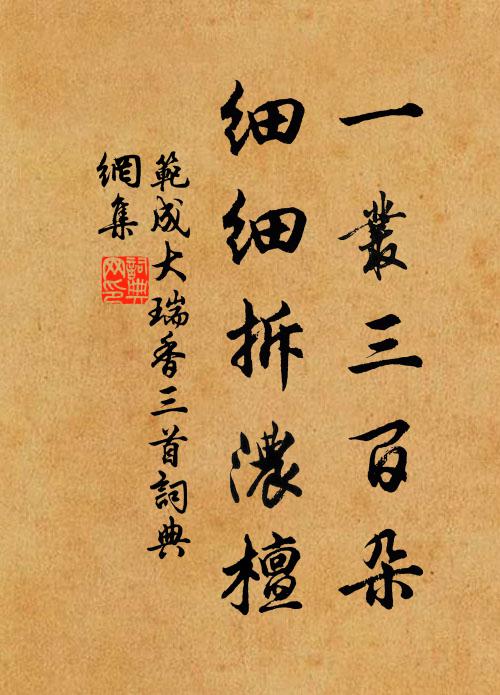 一叢三百朵
細細拆濃檀
範成大瑞香三首詞典
網集
詞典
网印